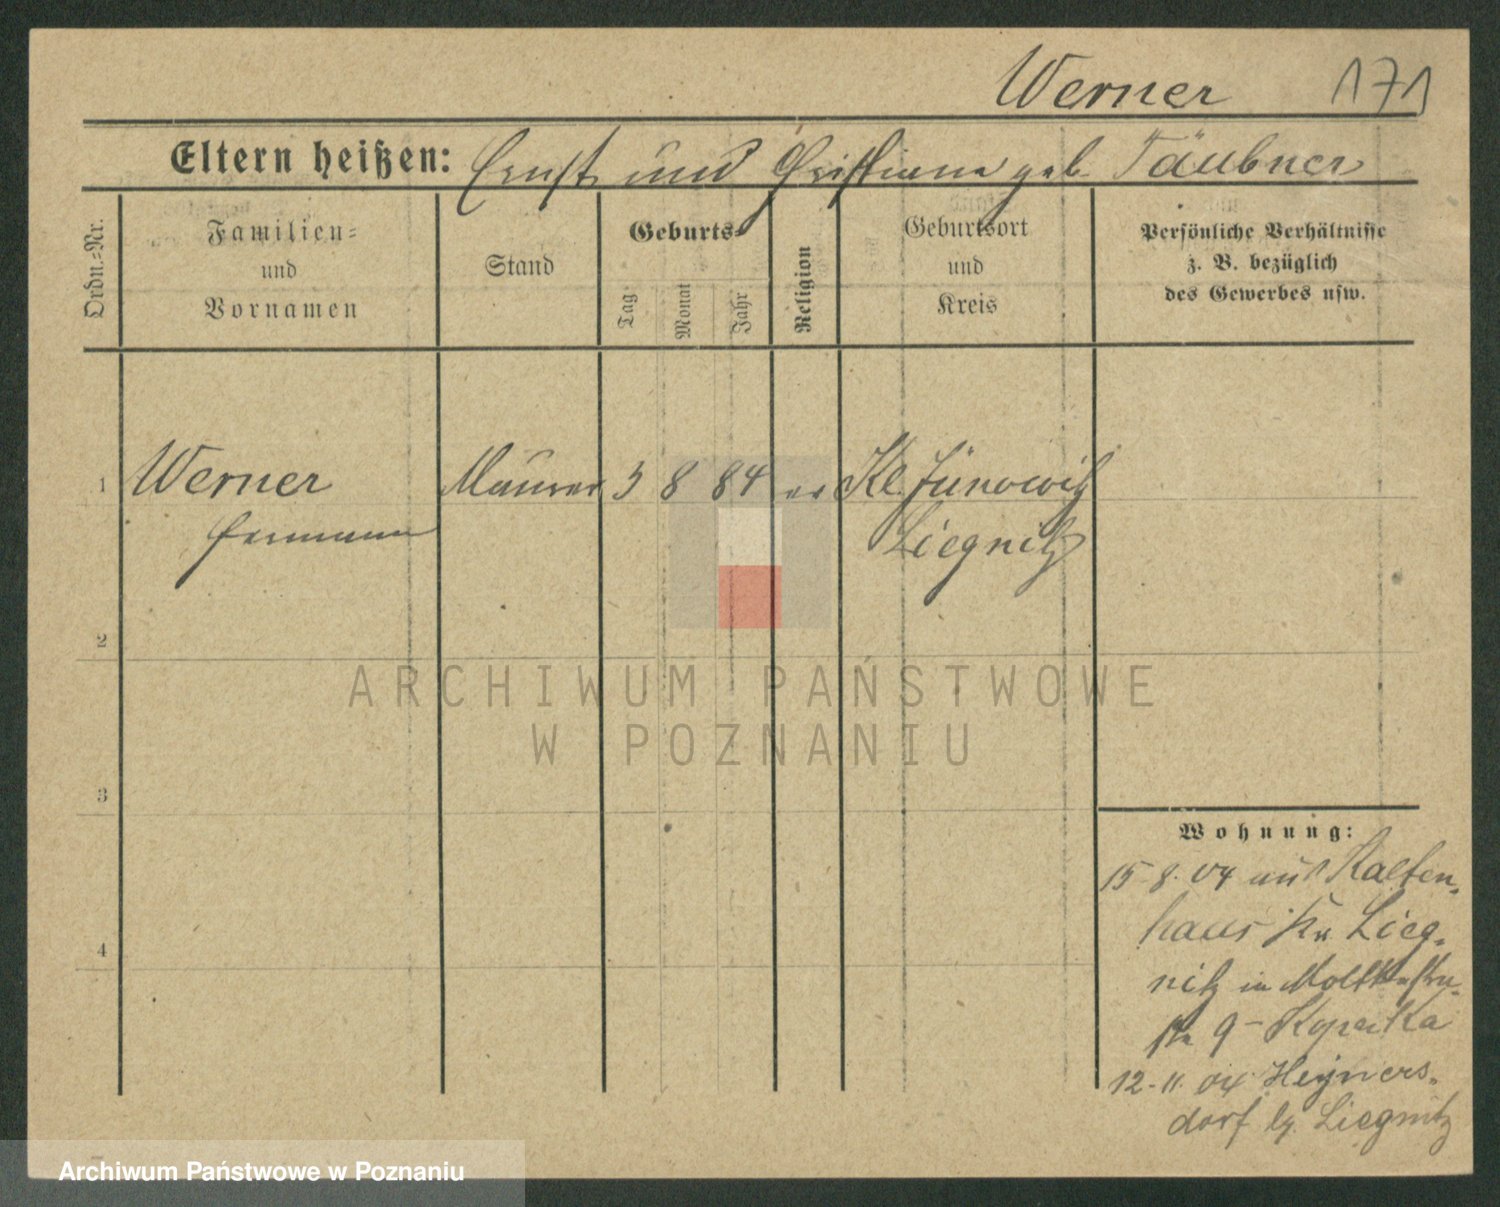 Werner 171
Eltern heißen: Ernst und Christiane geb. Täubner
Ordn.-Nr.
Familien-
und
Vornamen
Stand
Geburts-
Tag
Monat
Jahr
Religion
Geburtsort
und
Kreis
Persönliche Verhältnisse
z. B. bezüglich
des Gewerbes usw.
1 Werner Maurer 3 8 84 ev Kl.
Hermann Liegnitz
2
3
4
ARCHIWUM PAŃSTWOWE
W POZNANIU
Wohnung:
15-8. 04 aus Kalten-
haus Kr. Lieg-
nitz in
9 - Koperka
12-11. 04 Heyners-
dorf Liegnitz
Archiwum Państwowe w Poznaniu